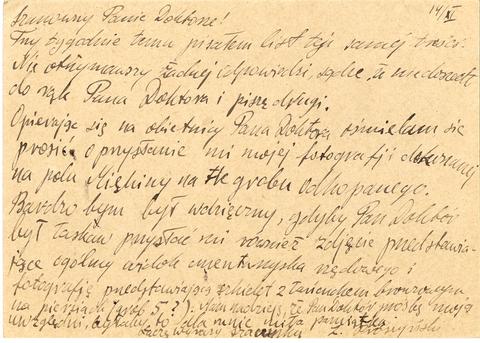 14/XI
Szanowny Panie Doktorze!
Trzy tygodnie temu pisałem list tej samej treści.
Nie otrzymawszy żadnej odpowiedzi, sądzę, że nie doszedł
do rąk Pana Doktora i piszę drugi.
Opierając się na obietnicy Pana Doktora ośmielam się
prosić o przysłanie mi mojej fotografji dokonanej
na polu na tle grobu odkopanego.
Bardzo bym był wdzięczny, gdyby Pan Doktór
był łaskaw przysłać mi również zdjęcie przedstawia-
jące ogólny widok cmentarzyska rzędowego i
fotografję przedstawiającą szkielet z łańcuchem bronzowym
na piersiach (grób 5?). Mam nadzieję, że Pan Doktór prośbę moją
uwzględni, byłaby to dla mnie miła pamiątka.
Łączę wyrazy szacunku